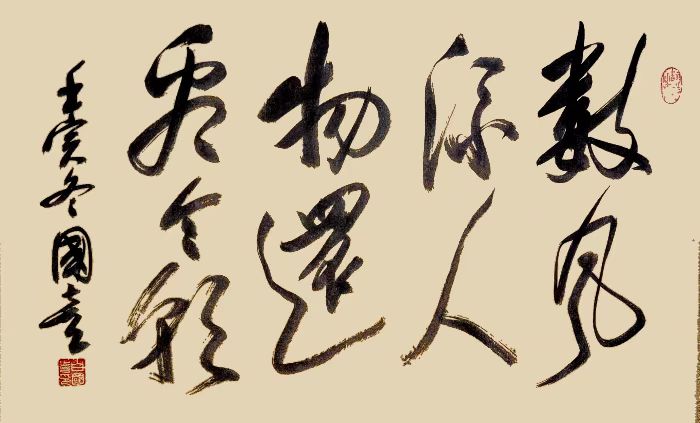 數風
流人
物還
看今朝
壬寅冬國